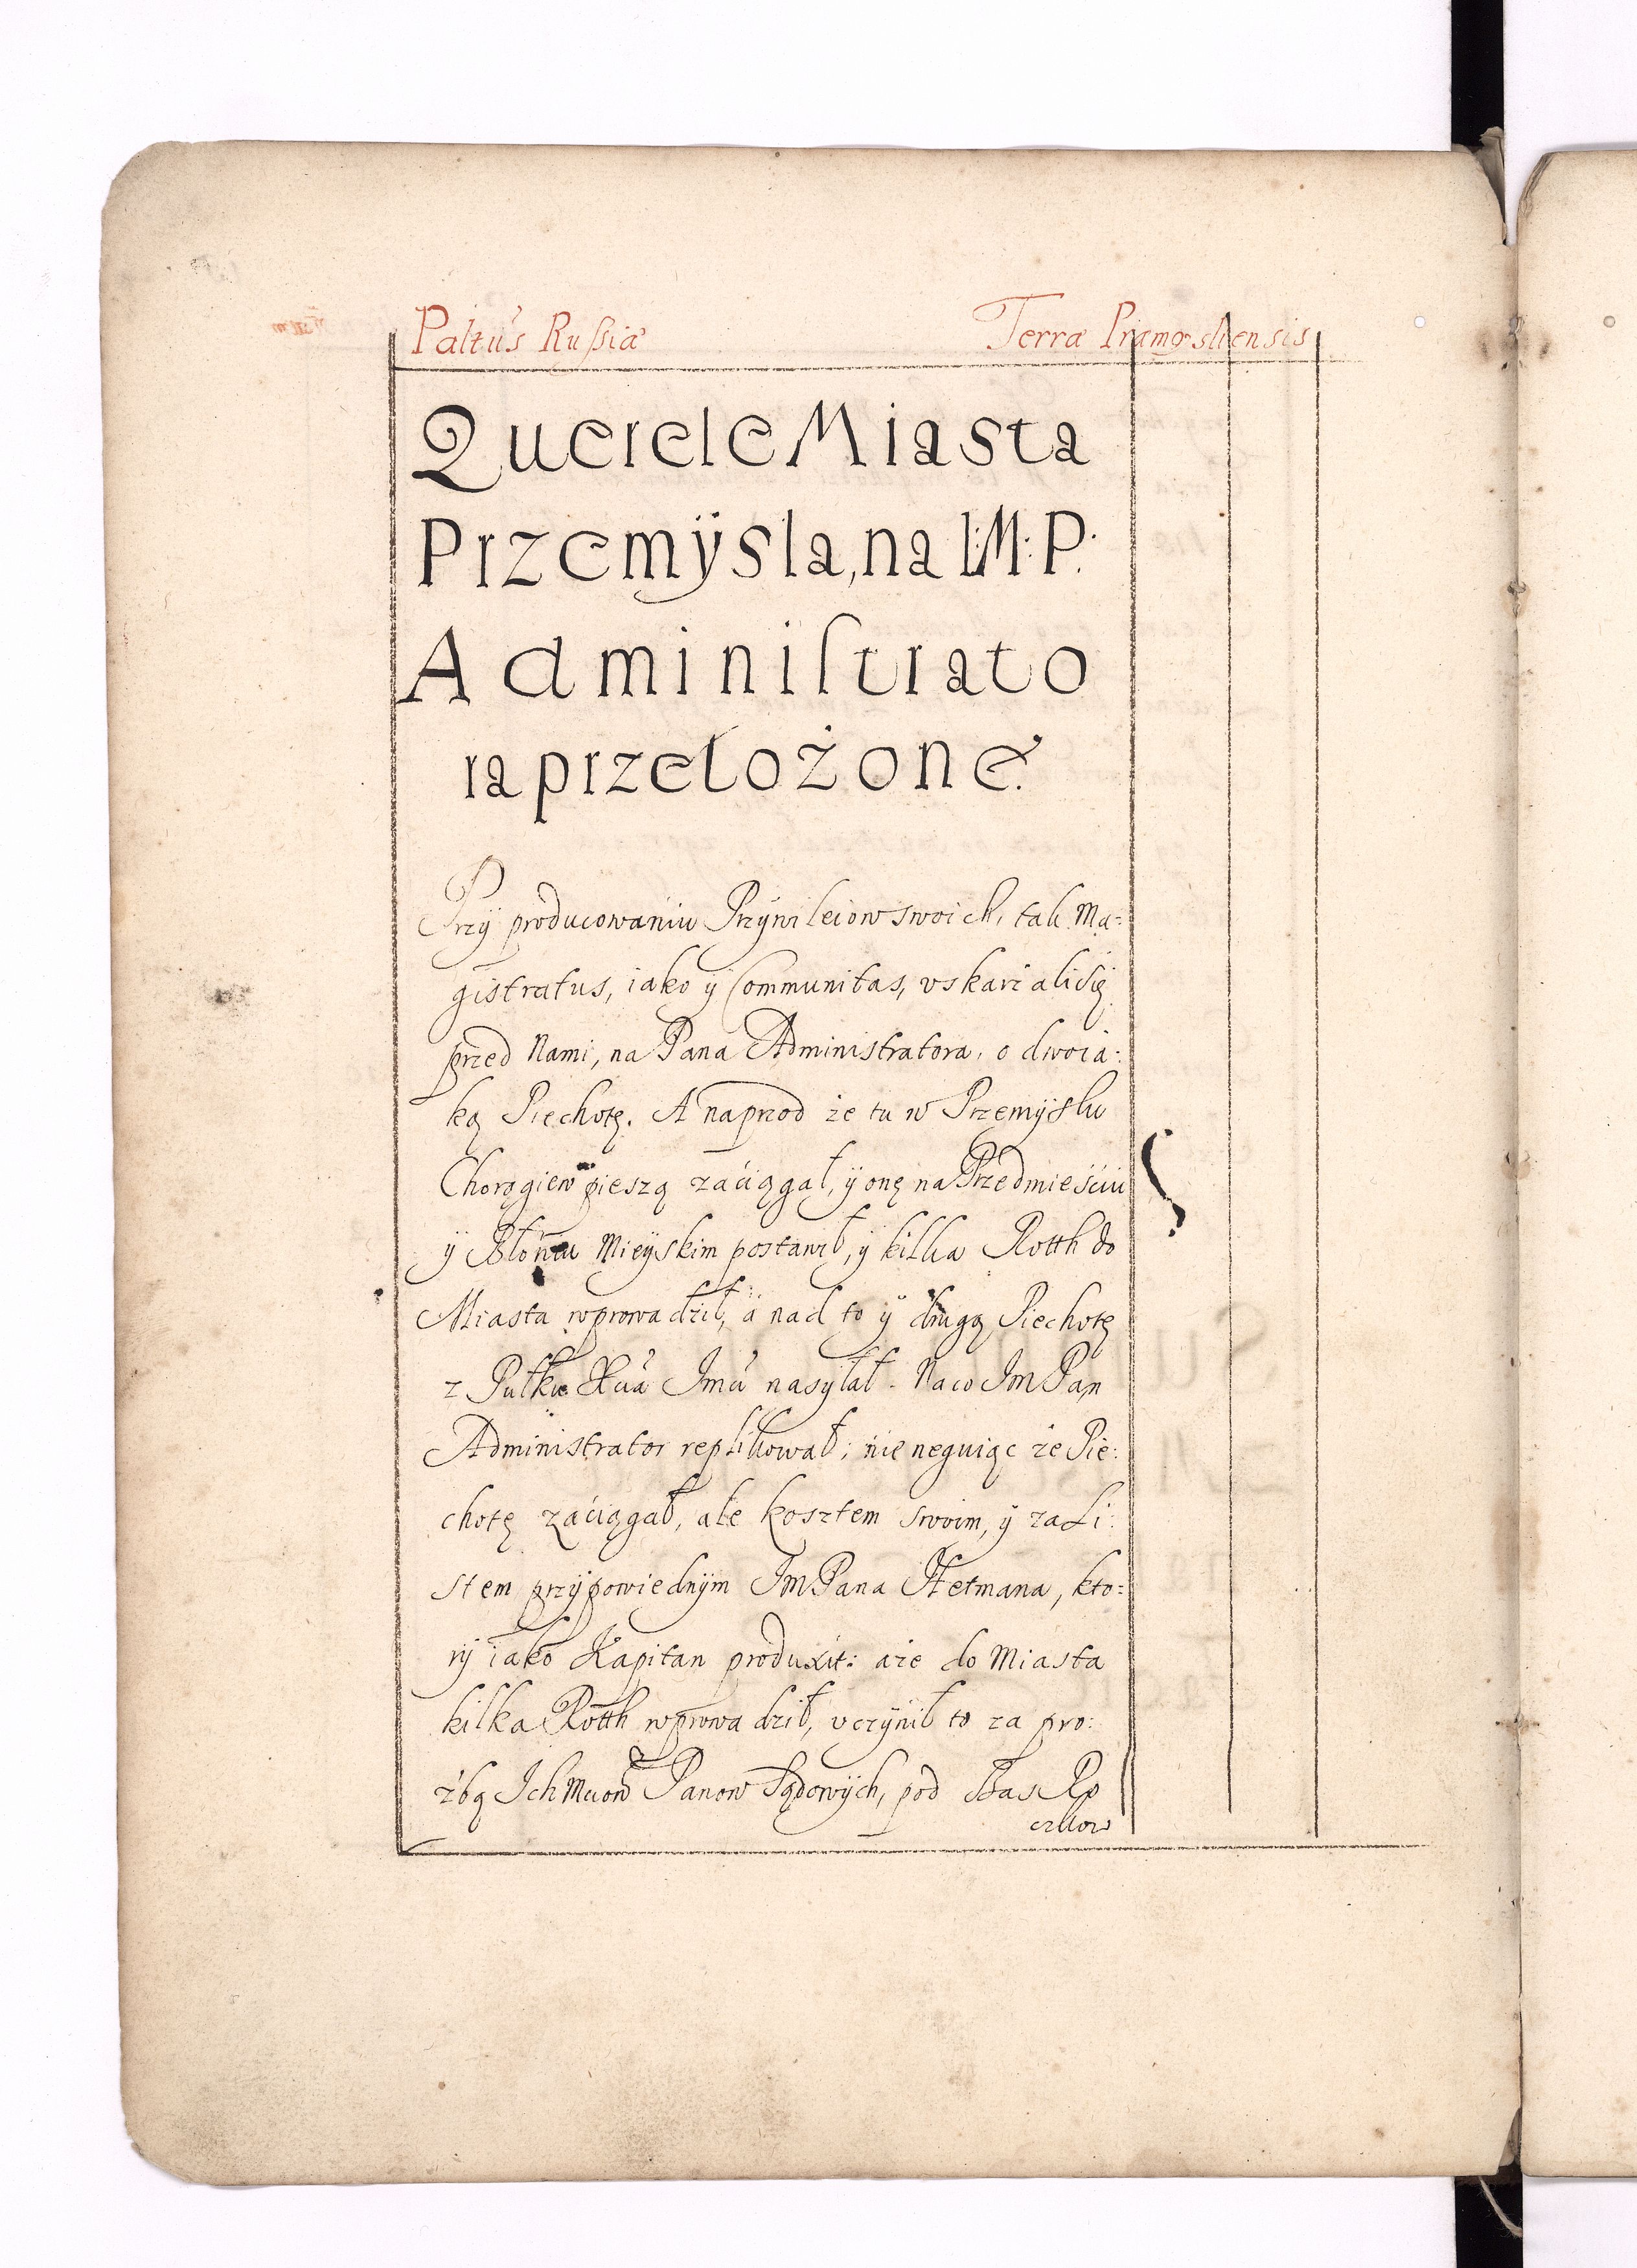 Paltus Rußiæ
Terræ Præmysliensis
Querele Miasta
Przemÿsla, na I.M. P:
Administrato
ra przełożone.
Przÿ producowaniu Przÿwileiow swoich, tak Ma=
gistratus, iako ÿ Communitas, vskarżali się
przed Nami, na Pana Administratora, o dwoia:
ką Piechotę. A naprzod że tu w Przemÿslu
Chorągiew pieszą záciągał, ÿ onę na Przedmieściu
ÿ Błoniu Mieÿskim postawił, ÿ kilka Rotth do
Miasta wprowadził, á nad to ÿ drugą Piechotę
z Pułku Xcia Imci nasÿłał. Na co Im Pan
Administrator replikował; nie neguiąc że Pie:
chotę záciągał, ale kosztem swoim, ÿ za Li:
stem przÿpowiednÿm Im Pana Hetmana, kto=
rÿ iako Kapitan produxit: a że do Miasta
kilka Rotth wprowadził, vczÿnił to za pro:
źbą Ich Mciow Panow Sądowÿch, pod czas Ro
czkow